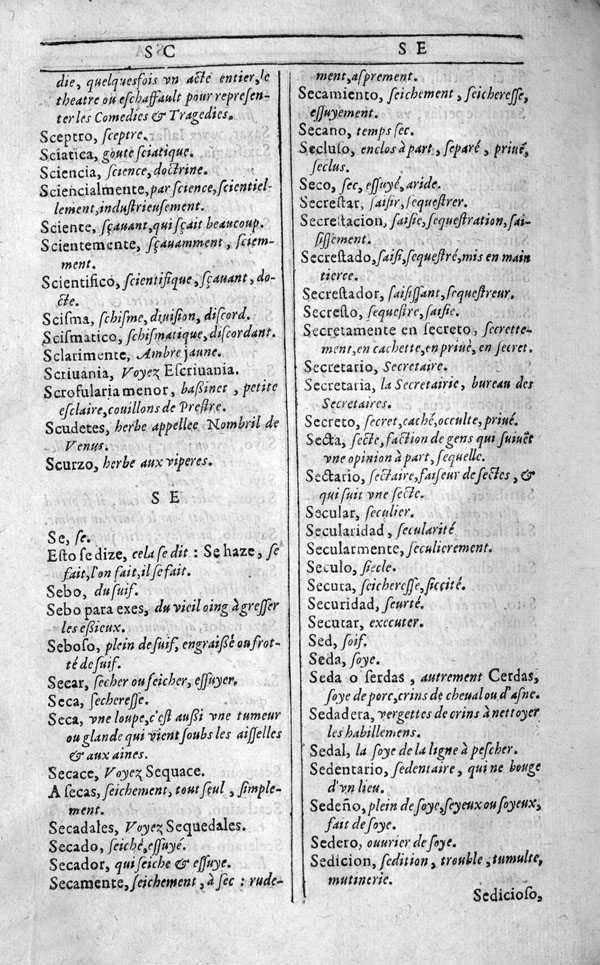 S C
die, quelquesfois vn acte entier, le
theatre ou eschaffault pour represen-
ter les Comedies & Tragedies.
Sceptro, sceptre.
Sciatica, goute sciatique.
Sciencia, science, doctrine.
Sciencialmente, par science, scientiel-
lement, industrieusement.
Sciente, sçauant, qui sçait beaucoup.
Scientemente, sçauamment, sciem-
ment.
Scientifico, scientifique, sçauant, do-
cte.
Scisma, schisme, diuision, discord.
Scismatico, schismatique, discordant.
Sclarimente, Ambre jaune.
Scriuania, Voyez Escriuania.
Scrofularia menor, baßinet, petite
esclaire, couillons de Prestre.
Scudetes, herbe appellee Nombril de
Venus.
Scurzo, herbe aux viperes.
S E
Se, se.
Esto se dize, cela se dit : Se haze, se
fait, l'on fait, il se fait.
Sebo, du suif.
Sebo para exes, du vieil oing à gresser
les eßieux.
Seboso, plein de suif, engraißé ou frot-
té de suif.
Secar, secher ou seicher, essuyer.
Seca, secheresse.
Seca, vne loupe, c'est außi vne tumeur
ou glande qui vient soubs les aisselles
& aux aines.
Secace, Voyez Sequace.
A secas, seichement, tout seul, simple-
ment.
Secadales, Voyez Sequedales.
Secado, seiché, essuyé.
Secador, qui seiche & essuye.
Secamente, seichement, à sec : rude-
S E
ment, asprement.
Secamiento, seichement, seicheresse,
essuyement.
Secano, temps sec.
Secluso, enclos à part, separé, priué,
seclus.
Seco, sec, essuyé, aride.
Secrestar, saisir, sequestrer.
Secrestacion, saisie, sequestration, sai-
sissement.
Secrestado, saisi, sequestré, mis en main
tierce.
Secrestador, saisissant, sequestreur.
Secresto, sequestre, saisie.
Secretamente en secreto, secrette-
ment, en cachette, en priué, en secret.
Secretario, Secretaire.
Secretaria, la Secretairie, bureau des
Secretaires.
Secreto, secret, caché, occulte, priué.
Secta, secte, faction de gens qui suiuẽt
vne opinion à part, sequelle.
Sectario, sectaire, faiseur de sectes, &
qui suit vne secte.
Secular, seculier.
Secularidad, secularité
Secularmente, seculierement.
Seculo, siecle.
Secura, seicheresse, siccité.
Securidad, seurté.
Secutar, executer.
Sed, soif.
Seda, soye.
Seda o serdas, autrement Cerdas,
soye de porc, crins de cheual ou d'asne.
Sedadera, vergettes de crins à nettoyer
les habillemens.
Sedal, la soye de la ligne à pescher.
Sedentario, sedentaire, qui ne bouge
d'vn lieu.
Sedeño, plein de soye, seyeux ou soyeux,
fait de soye.
Sedero, ouurier de soye.
Sedicion, sedition, trouble, tumulte,
mutinerie.
Sedicioso,